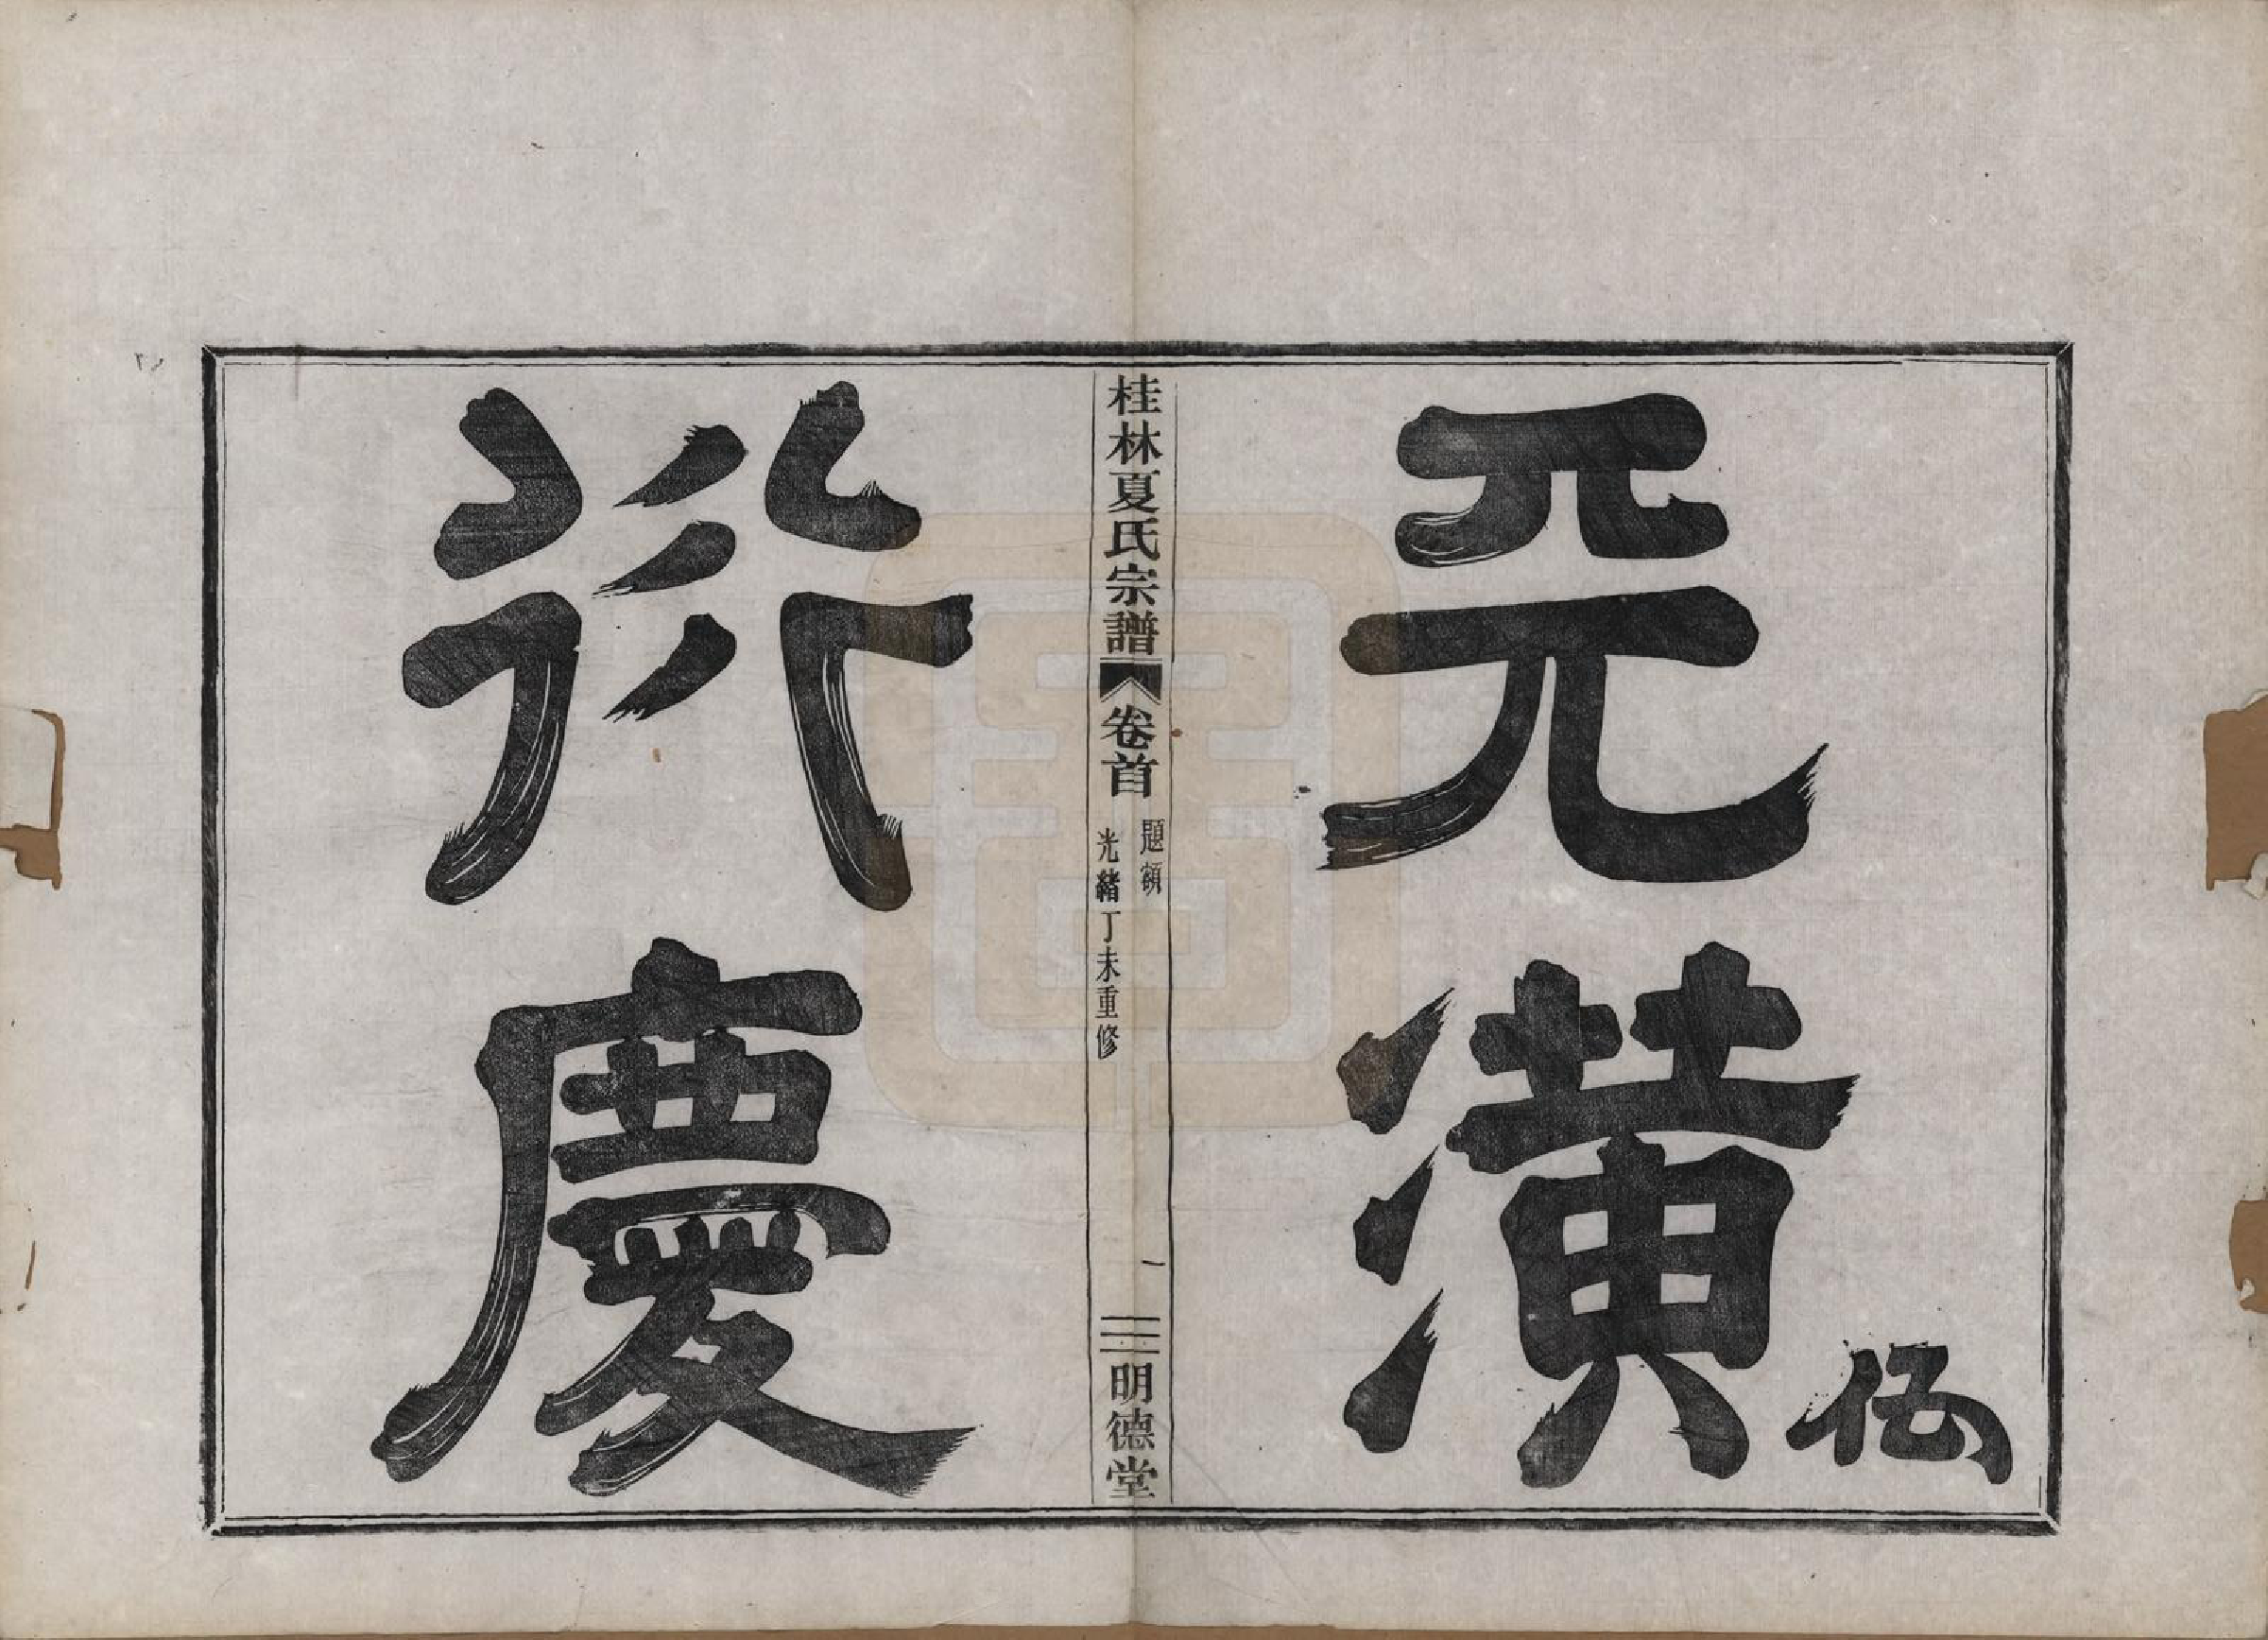 伍
天潢
桂林夏氏宗譜 卷首
題額
光緒丁未重修
一
明德堂
衍慶